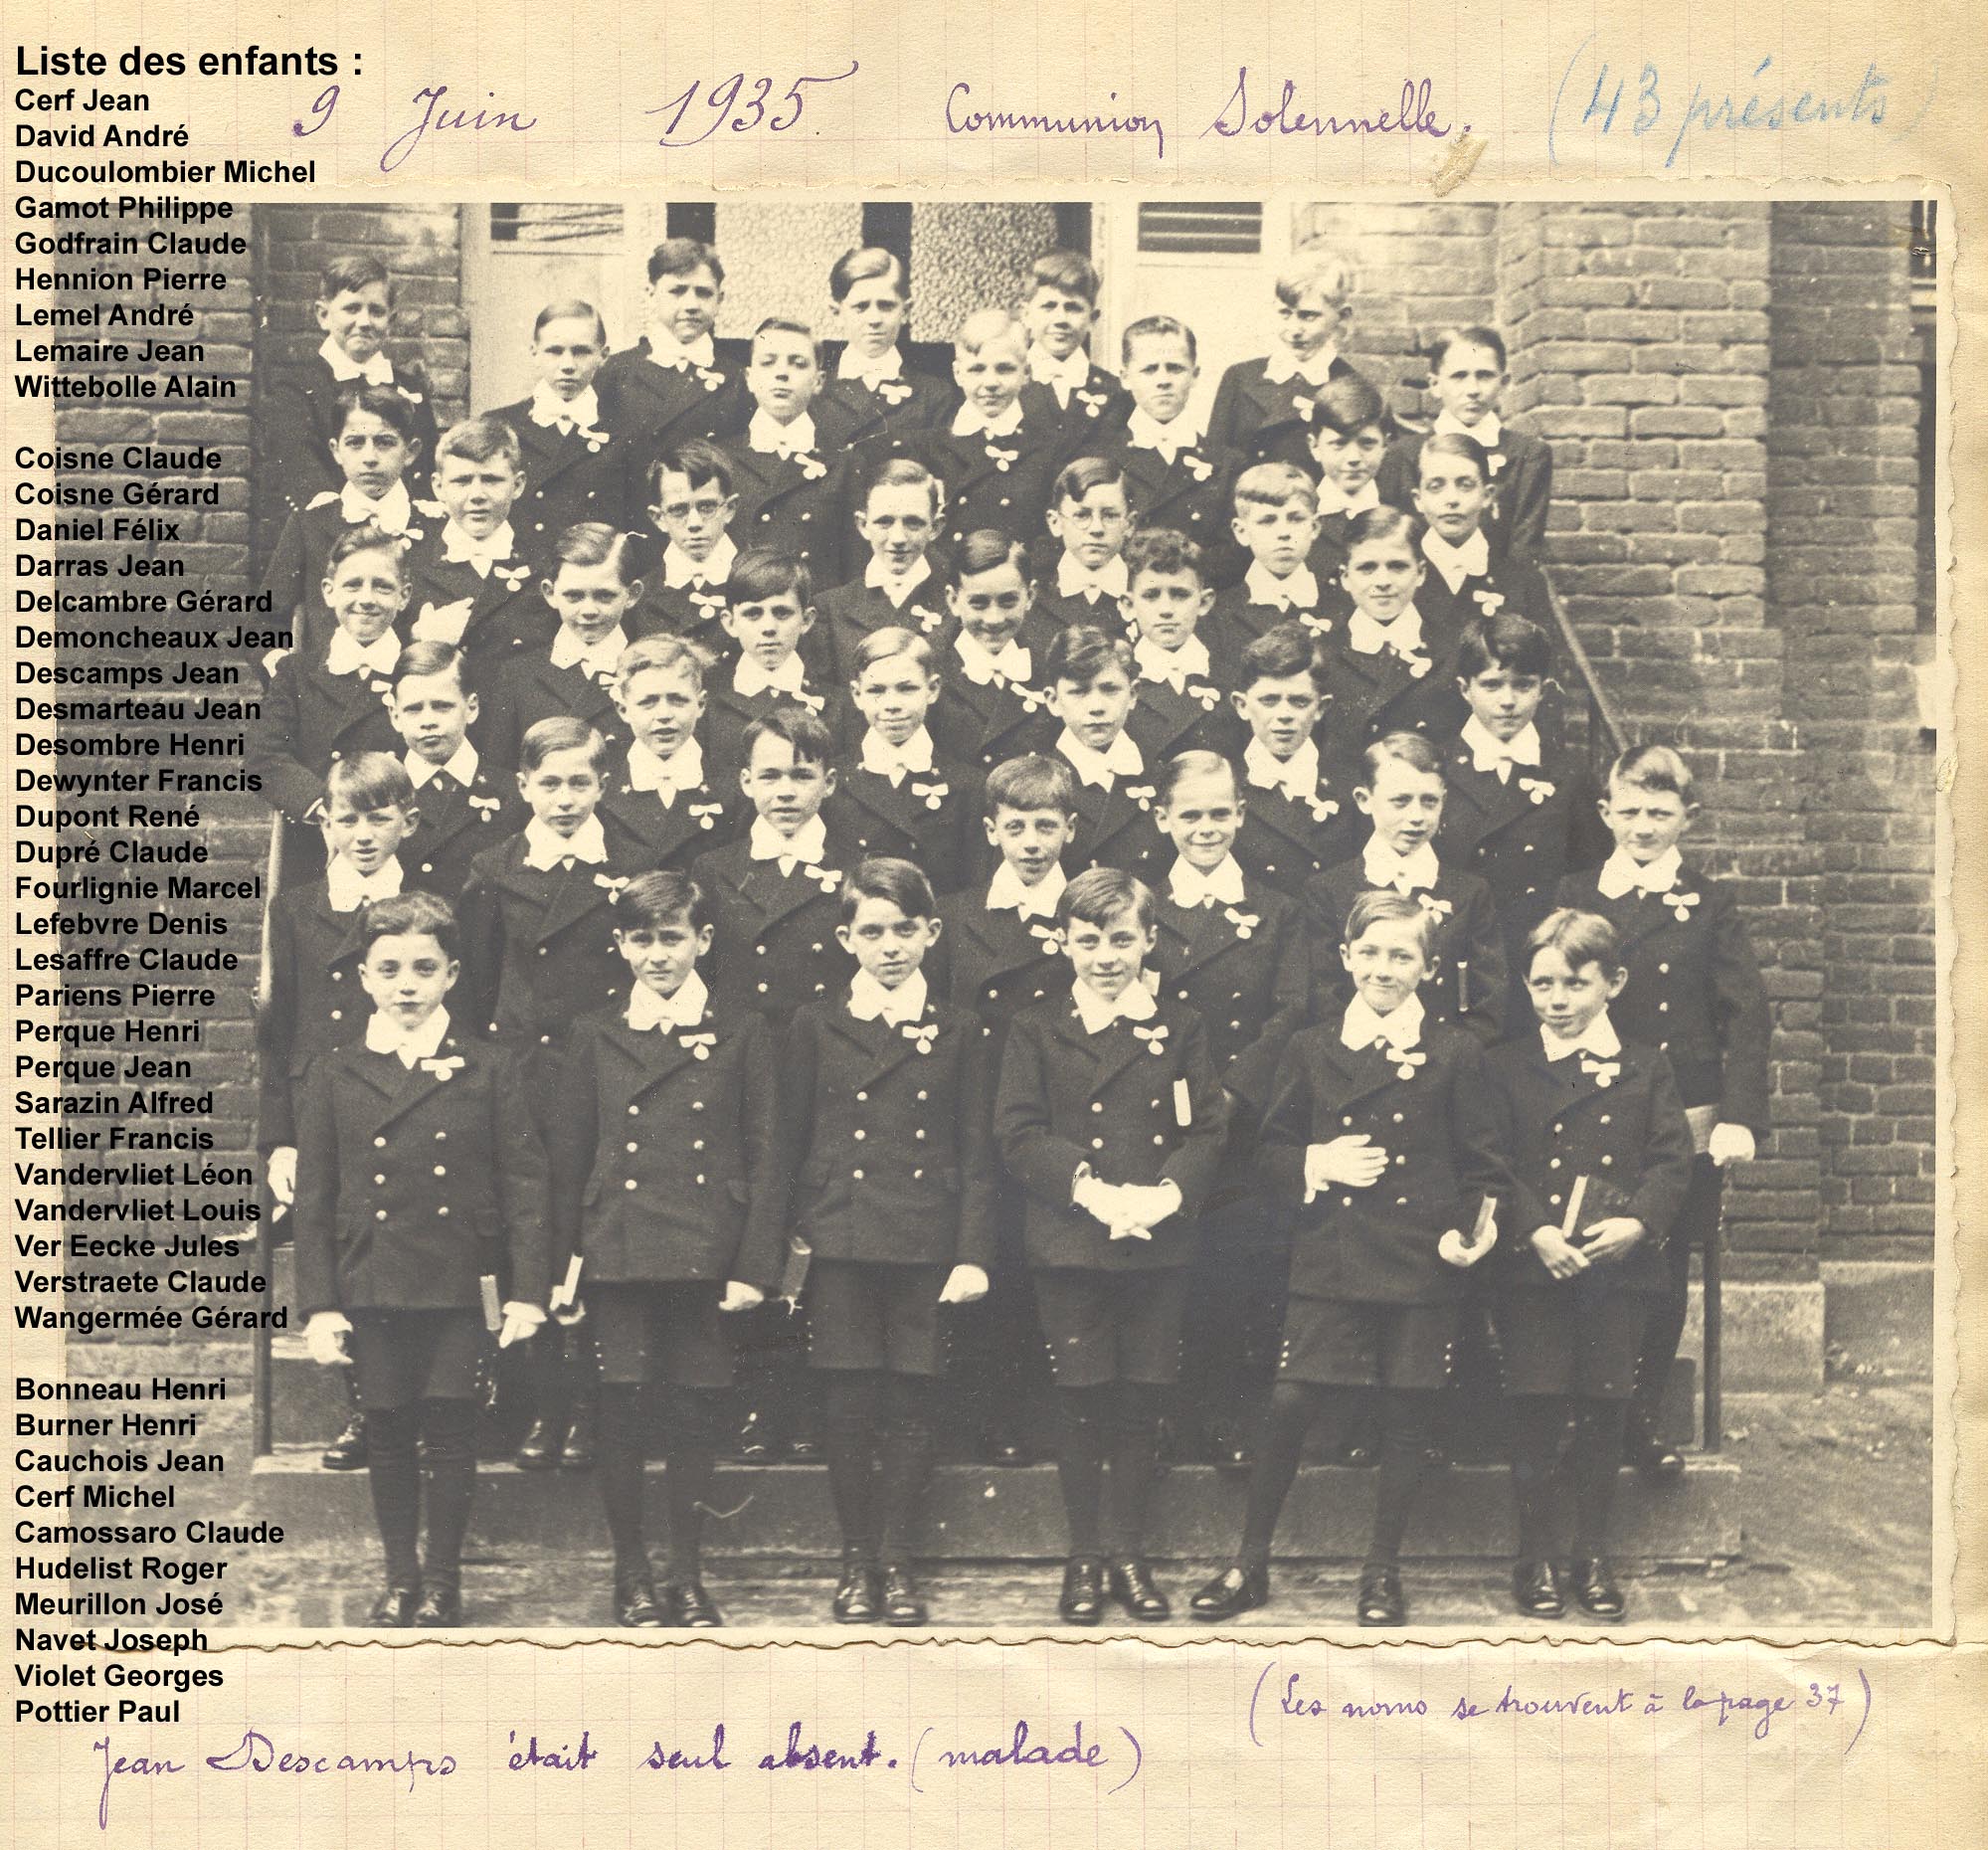 Liste des enfants :
9 Juin 1935. Communion Solennelle. (43 présents)
Cerf Jean
David André
Ducoulombier Michel
Gamot Philippe
Godfrain Claude
Hennion Pierre
Lemel André
Lemaire Jean
Wittebolle Alain
Coisne Claude
Coisne Gérard
Daniel Félix
Darras Jean
Delcambre Gérard
Demoncheaux Jean
Descamps Jean
Desmarteau Jean
Desombre Henri
Dewynter Francis
Dupont René
Dupré Claude
Fourlignie Marcel
Lefebvre Denis
Lesaffre Claude
Pariens Pierre
Perque Henri
Perque Jean
Sarazin Alfred
Tellier Francis
Vandervliet Léon
Vandervliet Louis
Ver Eecke Jules
Verstraete Claude
Wangermée Gérard
Bonneau Henri
Burner Henri
Cauchois Jean
Cerf Michel
Camossaro Claude
Hudelist Roger
Meurillon José
Navet Joseph
Violet Georges
Pottier Paul
(Les noms se trouvent à la page 37)
Jean Descamps était seul absent. (malade)